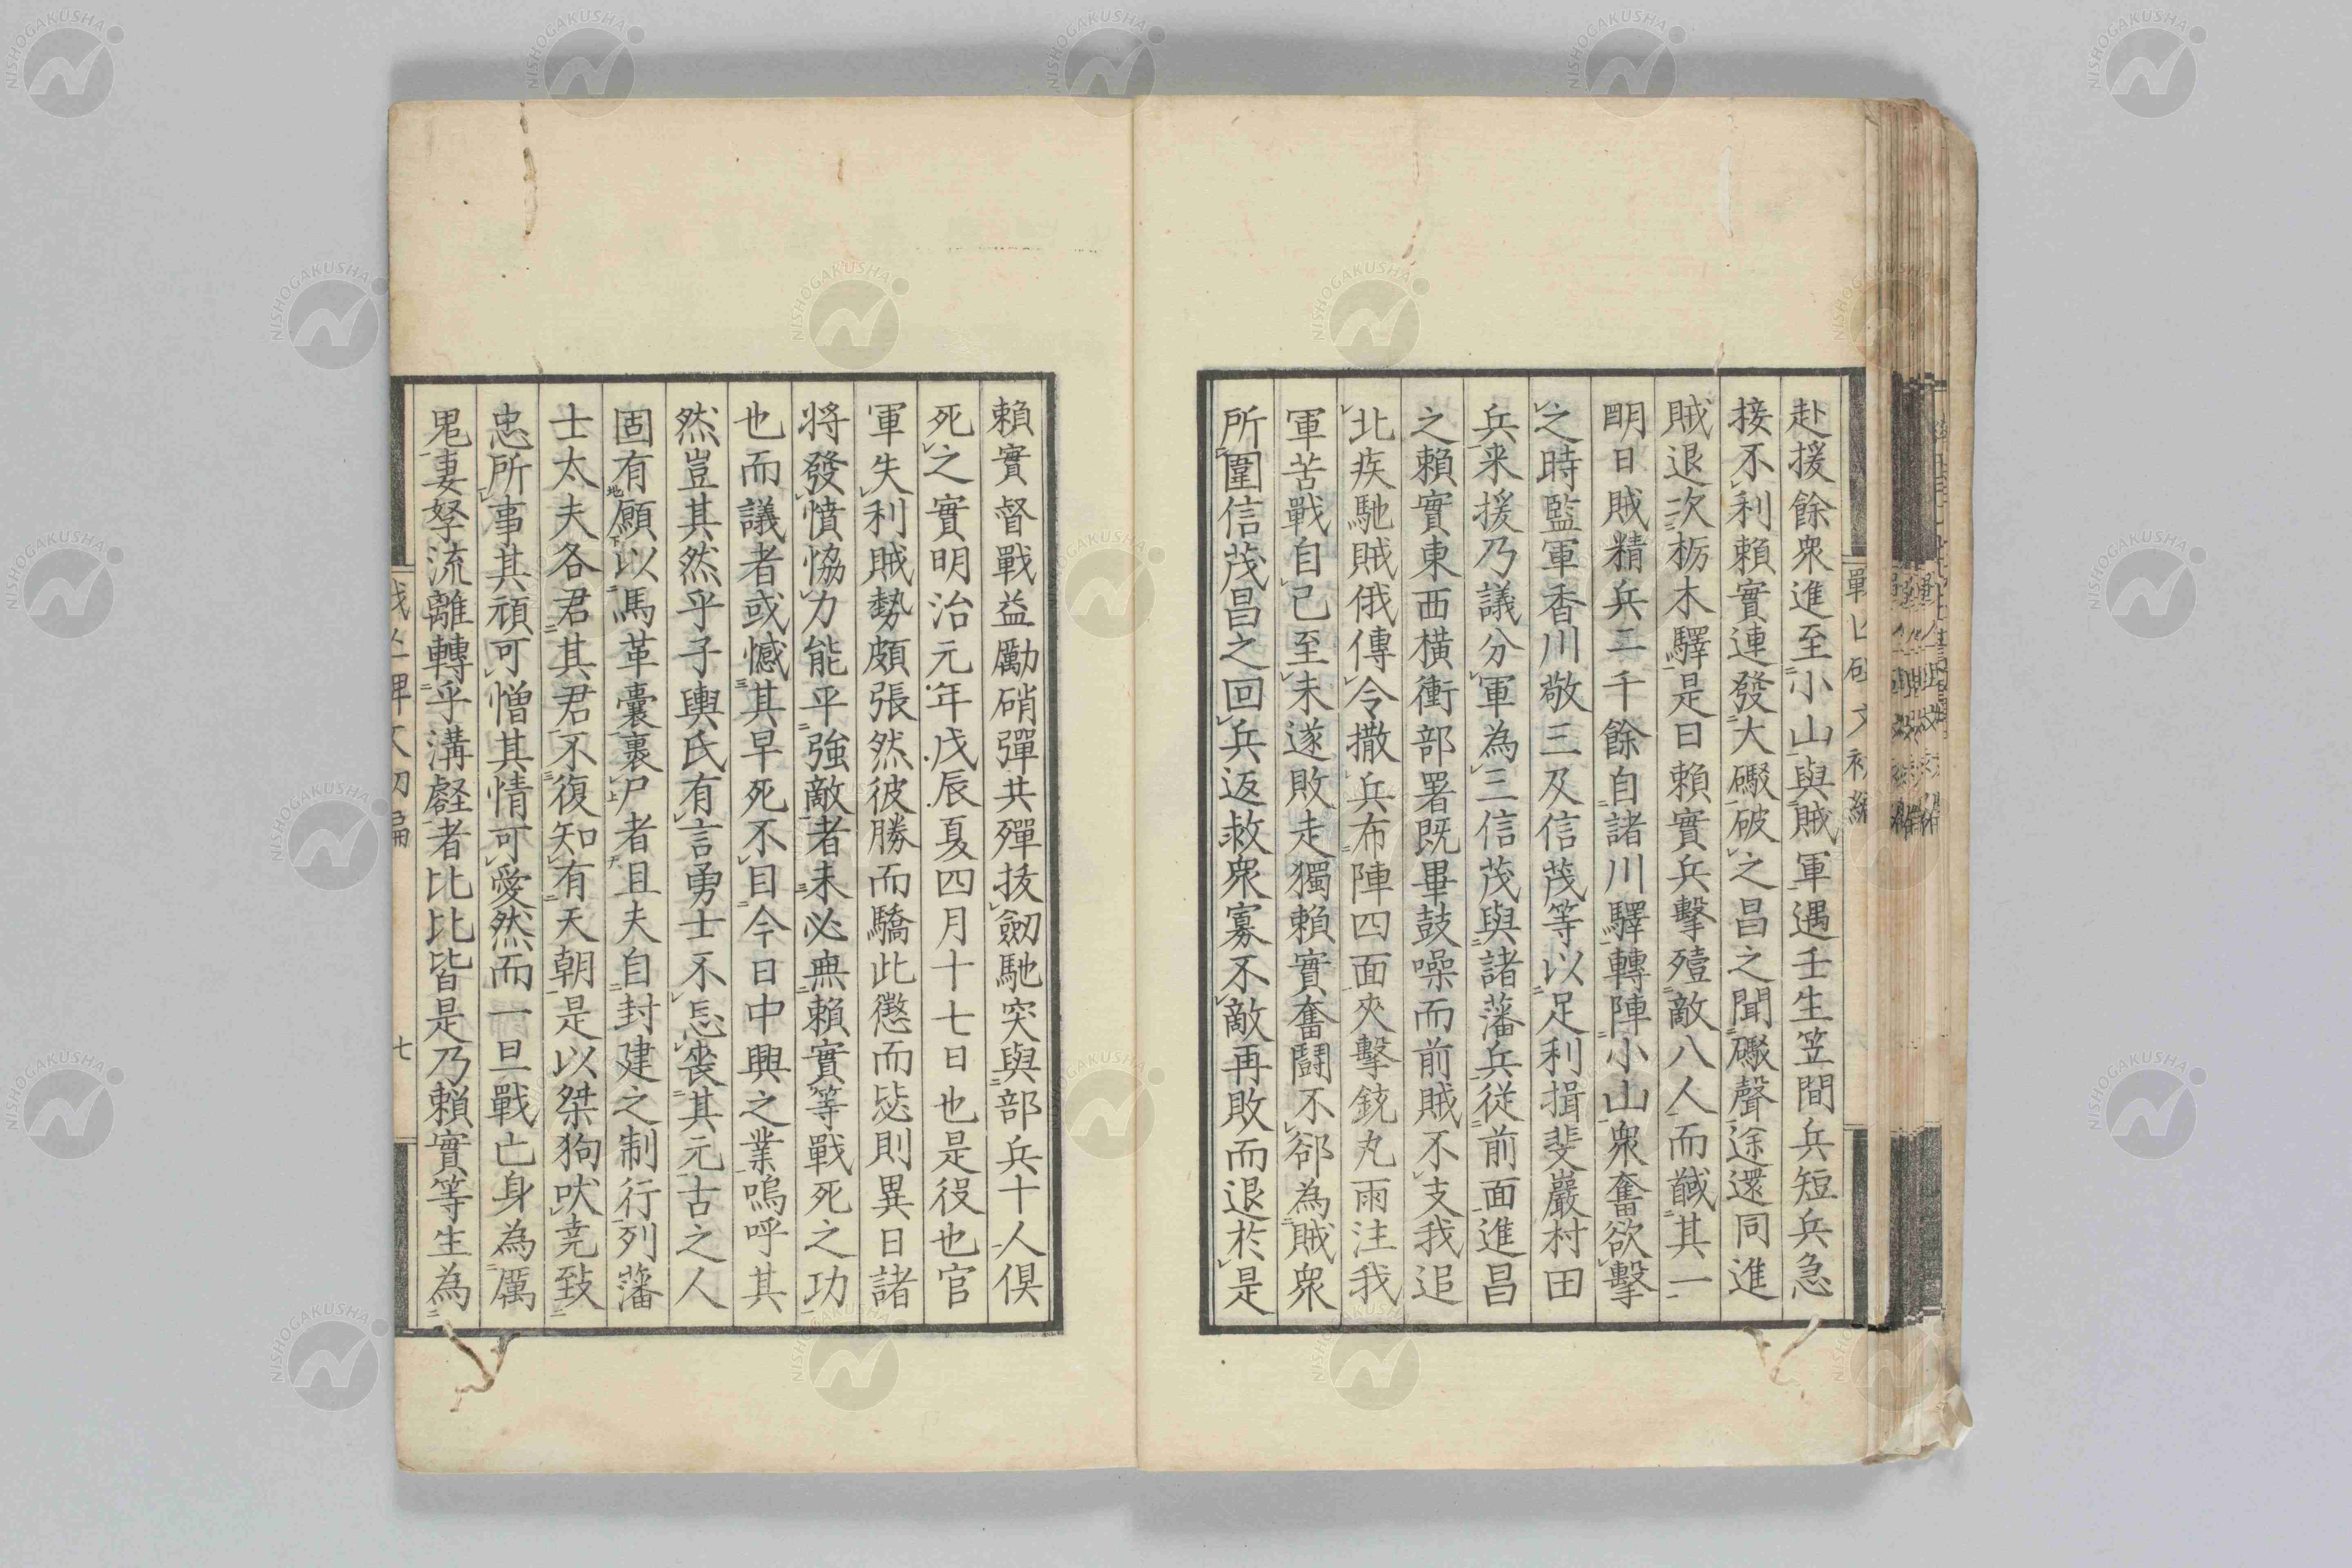 赴援餘衆進至小山與賊軍遇壬生笠間兵短兵急
接不利賴實連發大礮破之昌之聞礮聲途還同進
賊退次栃木驛是日賴實兵擊殪敵八人而馘其一
明日賊精兵二千餘自諸川驛轉陣小山衆奮欲擊
之時監軍香川敬三及信茂等以足利揖斐巖村田
兵来援乃議分軍為三信茂與諸藩兵従前面進昌
之賴實東西橫衝部署既畢鼓噪而前賊不支我追
北疾馳賊俄傳令撒兵布陣四面夾擊銃丸雨注我
軍苦戰自己至未遂敗走獨賴實奮鬪不郤為賊衆
所圍信茂昌之回兵返救衆寡不敵再敗而退於是
戰亡碑文初編
賴實督戰益勵硝彈共殫拔劒馳突與部兵十人俱
死之實明治元年戊辰夏四月十七日也是役也官
軍失利賊勢頗張然彼勝而驕此懲而毖則異日諸
将發憤恊力能平強敵者未必無賴實等戰死之功
也而議者或憾其早死不目今日中興之業嗚呼其
然豈其然乎子輿氏有言勇士不忘喪其元古之人
固有願以馬革囊裹尸者且夫自封建之制行列藩
士太夫各君其君不復知有天朝是以桀狗吠尭致
忠所事其頑可憎其情可愛然而一旦戰亡身為厲
鬼妻孥流離轉乎溝壑者比比皆是乃賴實等生為
戰亡碑文初編
七